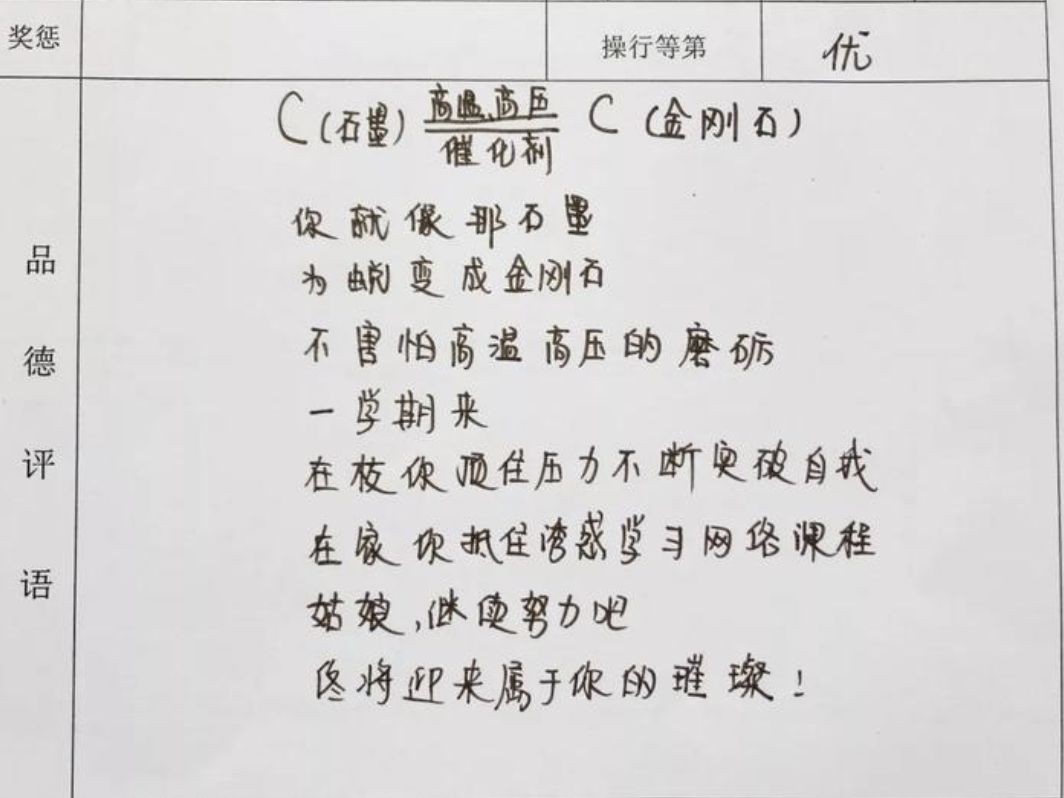 奖惩 操行等第 优
C(石墨) 高温、高压 C (金刚石)
催化剂
你就像那石墨
为蜕变成金刚石
不害怕高温高压的磨砺
一学期来
在校你顶住压力不断突破自我
在家你抵住诱惑学习网络课程
姑娘,继续努力吧
终将迎来属于你的璀璨!
品
德
评
语